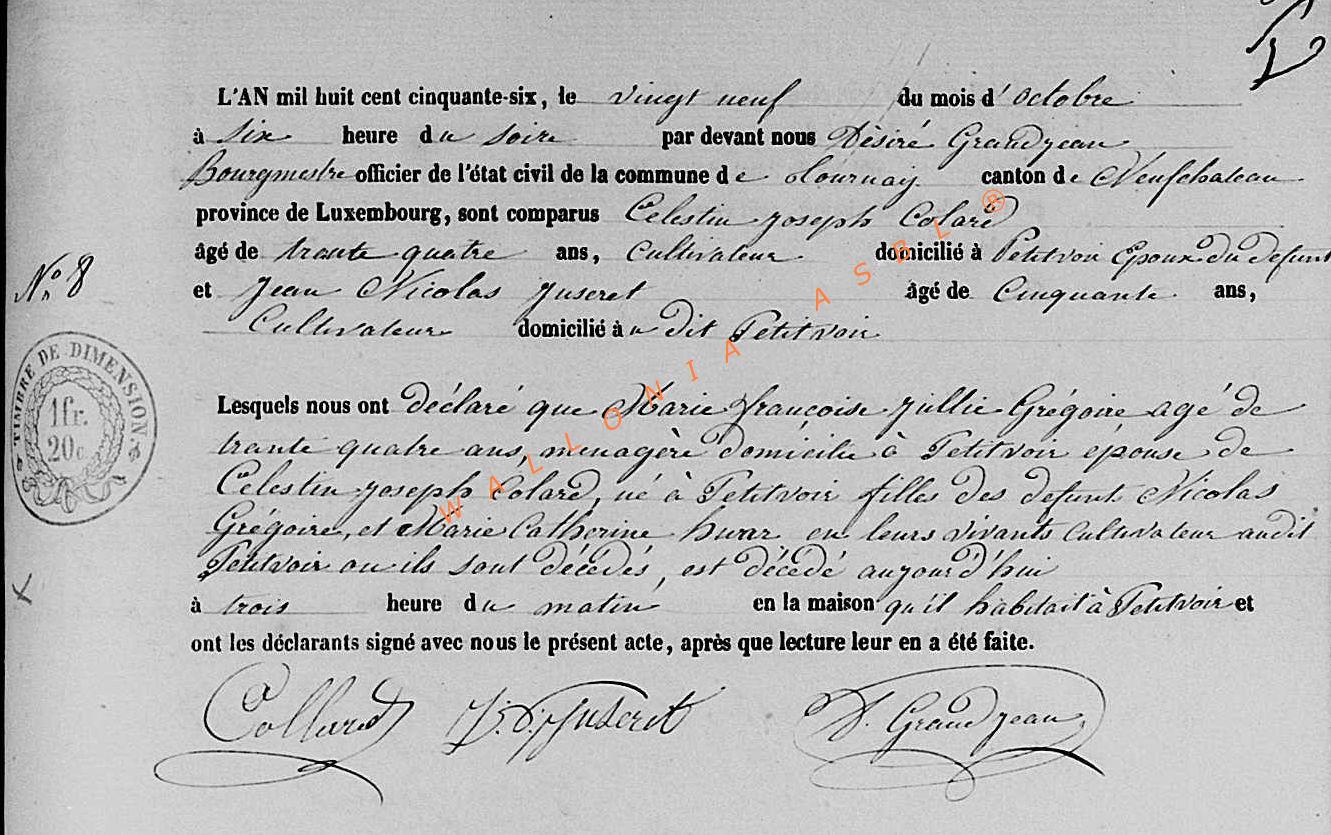 L'AN mil huit cent cinquante-six, le vingt neuf du mois d'octobre
à six heure du soire par devant nous Dèsiré Grandjean
Bourgmestre officier de l'état civil de la commune de Tournay canton de Neufchateau
province de Luxembourg, sont comparus Celestin Joseph Colard
âgé de trante quatre ans, Cultivateur domicilié à Petitvoir Epoux du defunt
N° 8
et Jean Nicolas Juseret âgé de Cinquante ans,
Cultivateur domicilié à u dit Petitvoir
TIMBRE DE DIMENSION
1fr.
20c.
Lesquels nous ont déclaré que Marie françoise jullie Grégoire agé de
trante quatre ans, menagère domicilie à Petitvoir épouse de
Celestin joseph Colard, né à Petitvoir filles des defunt Nicolas
Grégoire, et Marie Catherine huar en leurs vivants Cultivateur audit
Petitvoir ou ils sont décédés, est décédé aujourd'hui
à trois heure du matin en la maison qu'il habitait à Petitvoir et
ont les déclarants signé avec nous le présent acte, après que lecture leur en a été faite.
Collard Juseret D. Grandjean
WALLONIA ASBL ®